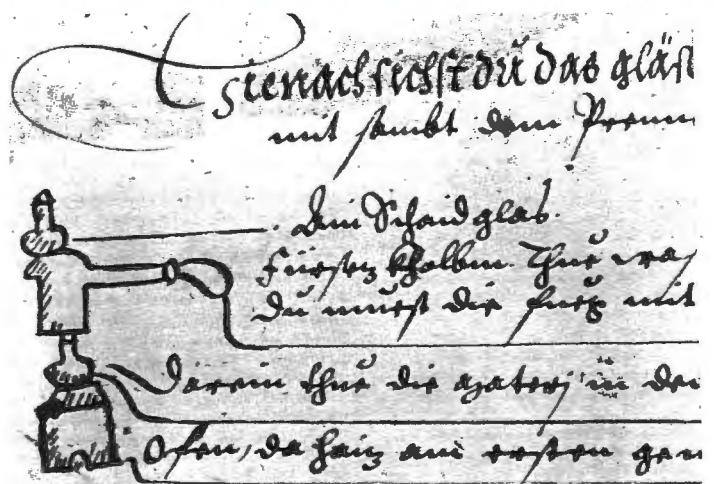 Hienach sichst dŭ das gläs
mit sambt dem Prenn
Ain Schaid glas.
Fürsetz Kholben. Thue was
du muest die fueg mit
Darein thue die materj in den
Ofen, da haiz am ersten gen